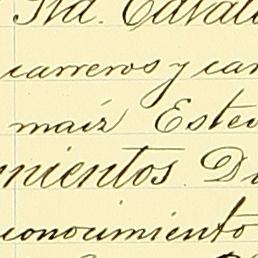 Sta. Catal
carreros y car
maíz Estev
mientos. Di
conocimiento